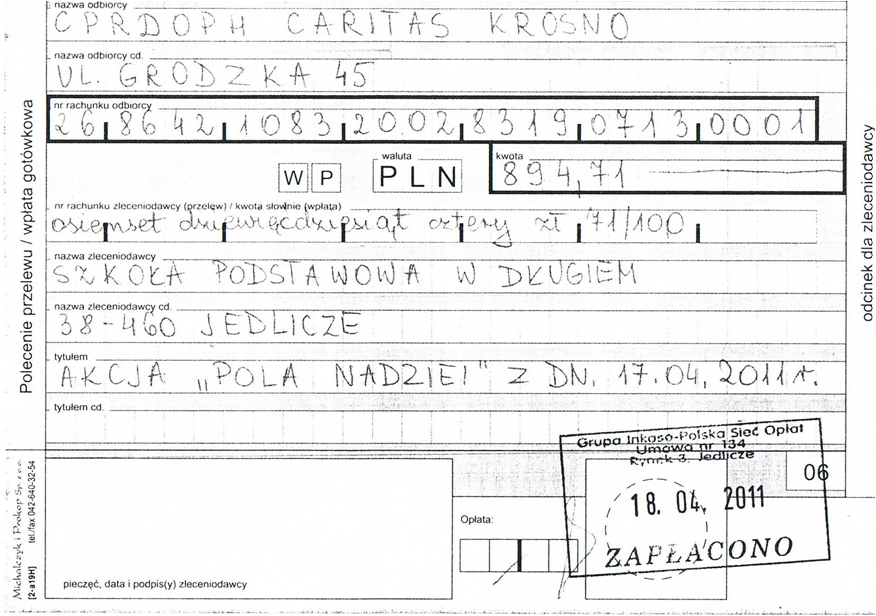 nazwa odbiorcy
CPRDOPH CARITAS KROSNO
nazwa odbiorcy cd.
UL. GRODZKA 45
nr rachunku odbiorcy
26 8642 1083 2002 8319 0713 0001
W P
waluta
PLN
kwota
894,71
nr rachunku zleceniodawcy (przelew) / kwota słownie (wpłata)
osiemset dziewięćdziesiąt cztery zł 71/100
nazwa zleceniodawcy
SZKOŁA PODSTAWOWA W DŁUGIEM
nazwa zleceniodawcy cd.
38-460 JEDLICZE
tytułem
AKCJA „POLA NADZIEI" Z DN. 17.04.2011r.
tytułem cd.
Polecenie przelewu / wpłata gotówkowa
odcinek dla zleceniodawcy
Grupa Inkaso-Polska Sieć Opłat
Umowa nr 134
Rynek 3, Jedlicze
18. 04. 2011
ZAPŁACONO
06
Opłata:
pieczęć, data i podpis(y) zleceniodawcy
Michalczyk i Prokop Sp. z o.o.
[2-a19H] tel./fax 042-640-32-54